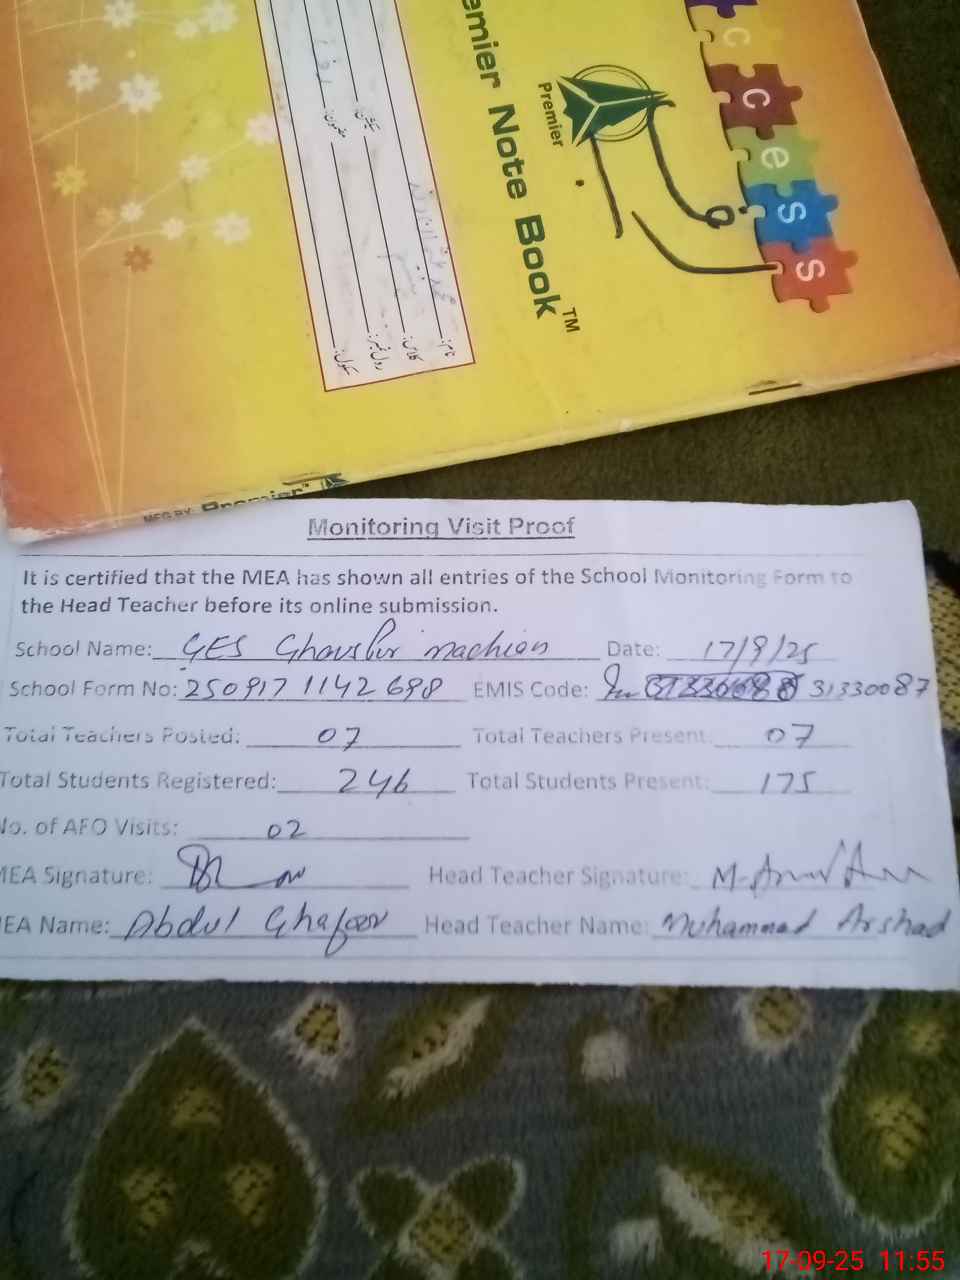 c
c
e
s
s
Premier
emier Note Book™
نام:
کلاس:
رول نمبر:
سیکشن:
مضمون:
سکول:
MFG BY: Premier
Monitoring Visit Proof
It is certified that the MEA has shown all entries of the School Monitoring Form to
the Head Teacher before its online submission.
School Name: GES Ghauspur machian Date: 17/9/25
School Form No: 250917 1142698 EMIS Code: 31330087
Total Teachers Posted: 07 Total Teachers Present: 07
Total Students Registered: 246 Total Students Present: 175
No. of AEO Visits: 02
MEA Signature: Head Teacher Signature:
MEA Name: Abdul Ghafoor Head Teacher Name: Muhammad Arshad
17-09-25 11:55